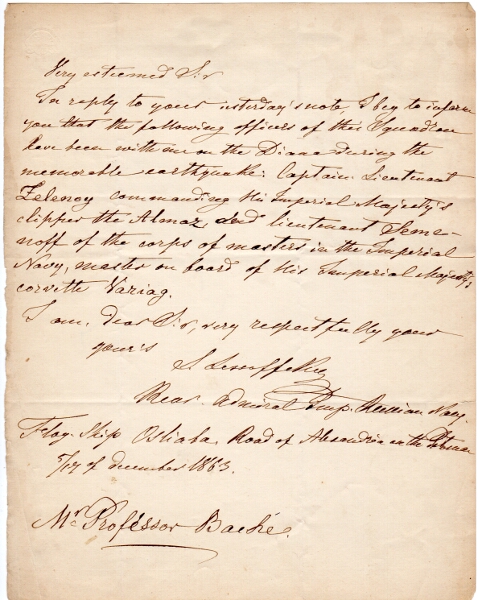 Very esteemed Sir
In reply to your yesterday's note I beg to inform
you that the following officers of this Squadron
have been with me on the Diana during the
memorable earthquake: Captain Lieutenant
Zelenoy commanding His Imperial Majesty's
clipper the Almaz and lieutenant Seme-
noff of the corps of masters in the Imperial
Navy, master on board of His Imperial Majesty's
corvette Variag.
I am, dear Sir, very respectfully your
your's
S Lessoffsky
Rear Admiral Imp. Russian Navy.
Flag Ship Osliaba Road of Alexandria on the
of december 1863.
Mr Professor Bache.